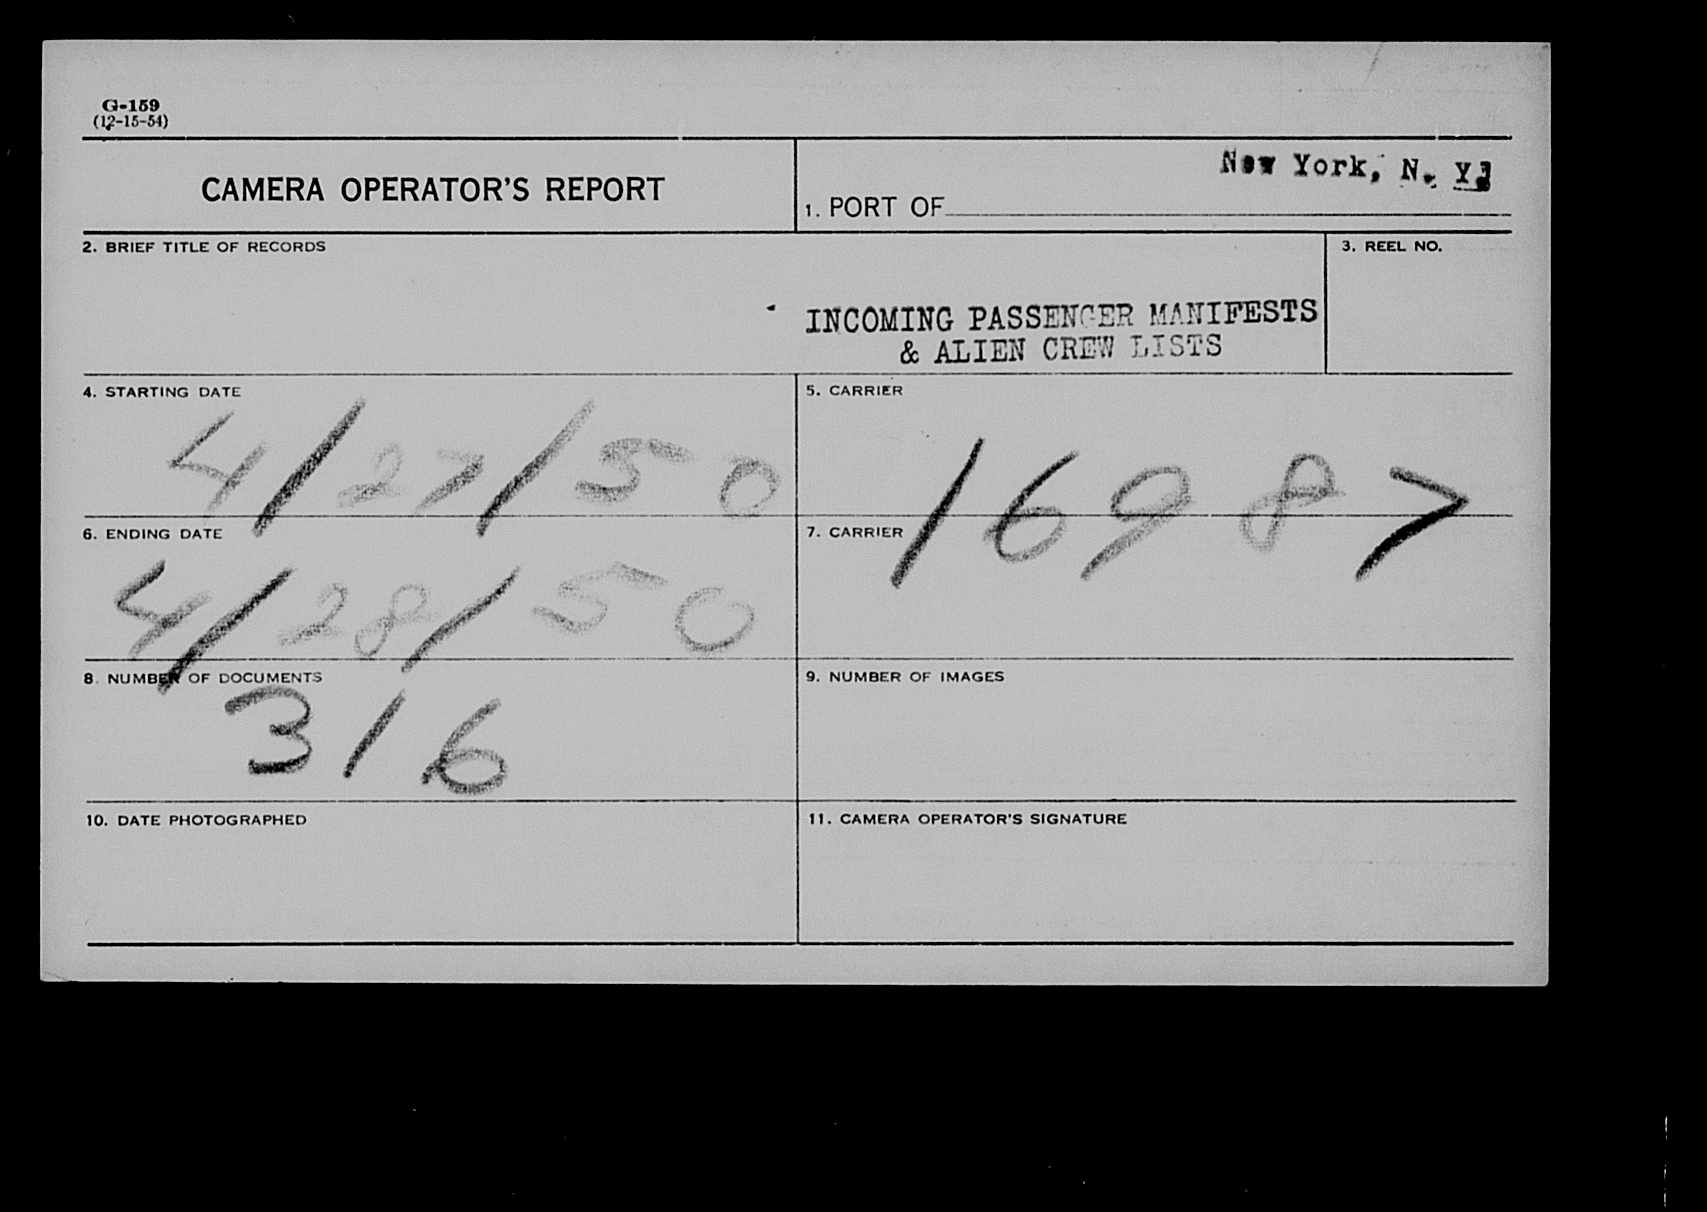 G-159
(12-15-54)
CAMERA OPERATOR'S REPORT
1. PORT OF New York, N. Y.
2. BRIEF TITLE OF RECORDS
INCOMING PASSENGER MANIFESTS
& ALIEN CREW LISTS
3. REEL NO.
4. STARTING DATE
4/27/50
5. CARRIER
16987
6. ENDING DATE
4/28/50
7. CARRIER
8. NUMBER OF DOCUMENTS
316
9. NUMBER OF IMAGES
10. DATE PHOTOGRAPHED
11. CAMERA OPERATOR'S SIGNATURE